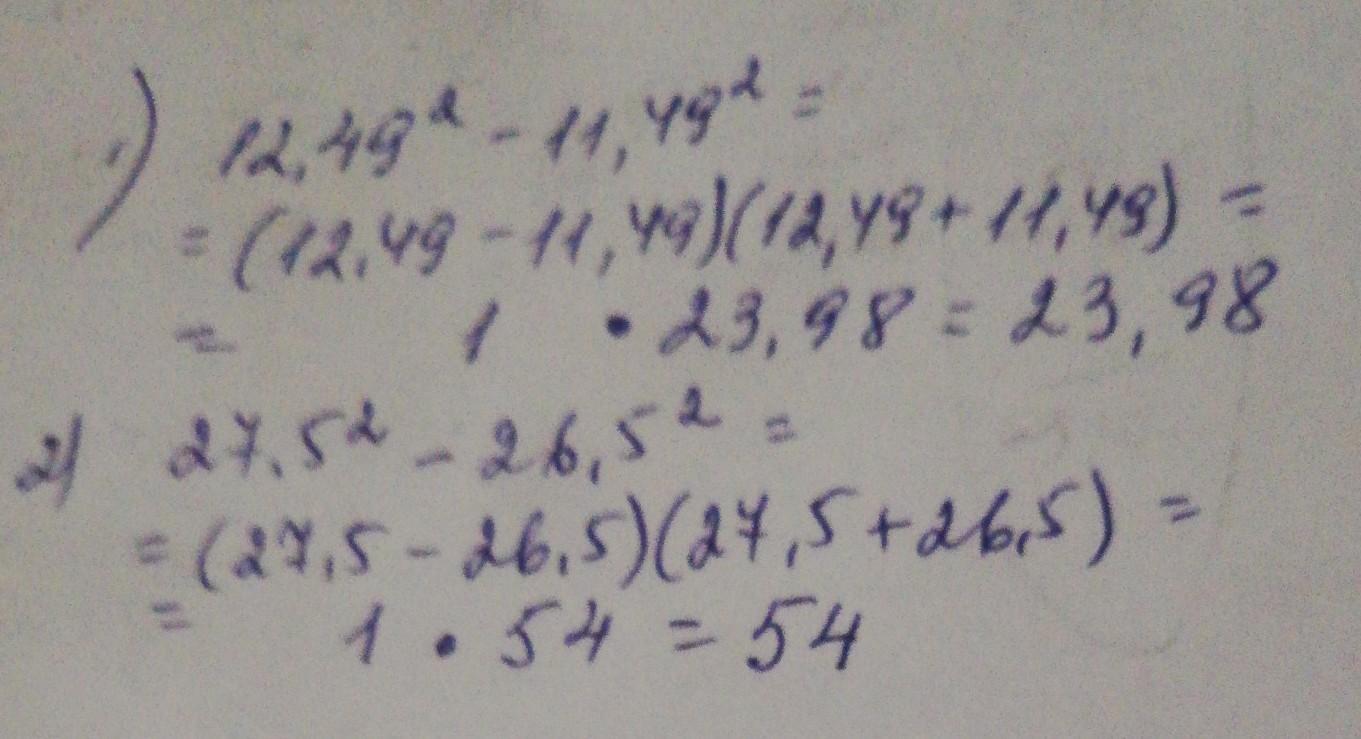 1) 12,49² - 11,49² =
= (12,49 - 11,49)(12,49 + 11,49) =
= 1 • 23,98 = 23,98
2) 27,5² - 26,5² =
= (27,5 - 26,5)(27,5 + 26,5) =
= 1 • 54 = 54